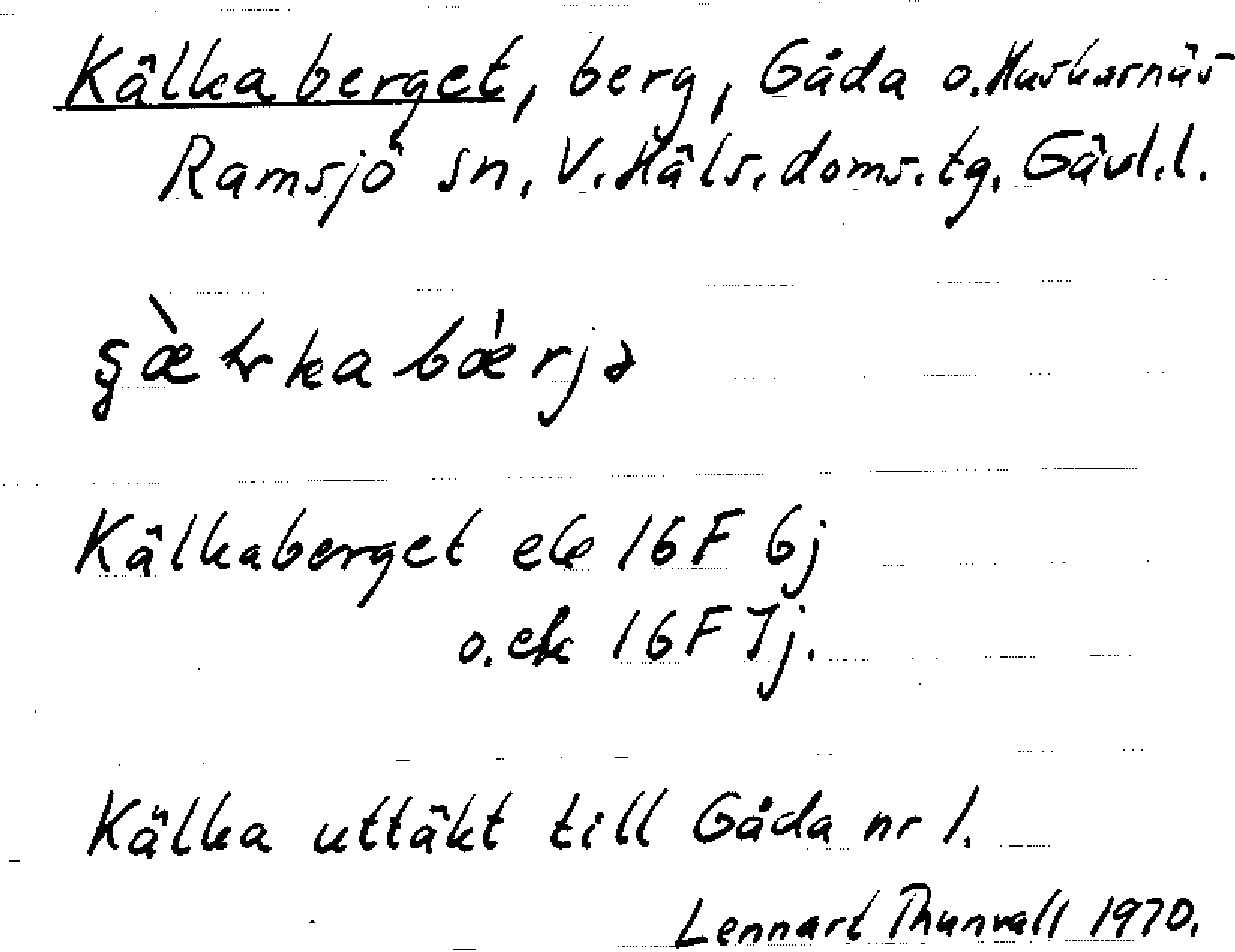 Kälkaberget, berg, Gåda o. Huskasnäs
Ramsjö sn, V. Häls. doms. tg. Gävl. l.
Kälkaberget ek 16 F 6j
o. ek 16 F 7j.
Kälka uttäkt till Gåda nr 1.
Lennart Thunvall 1970.